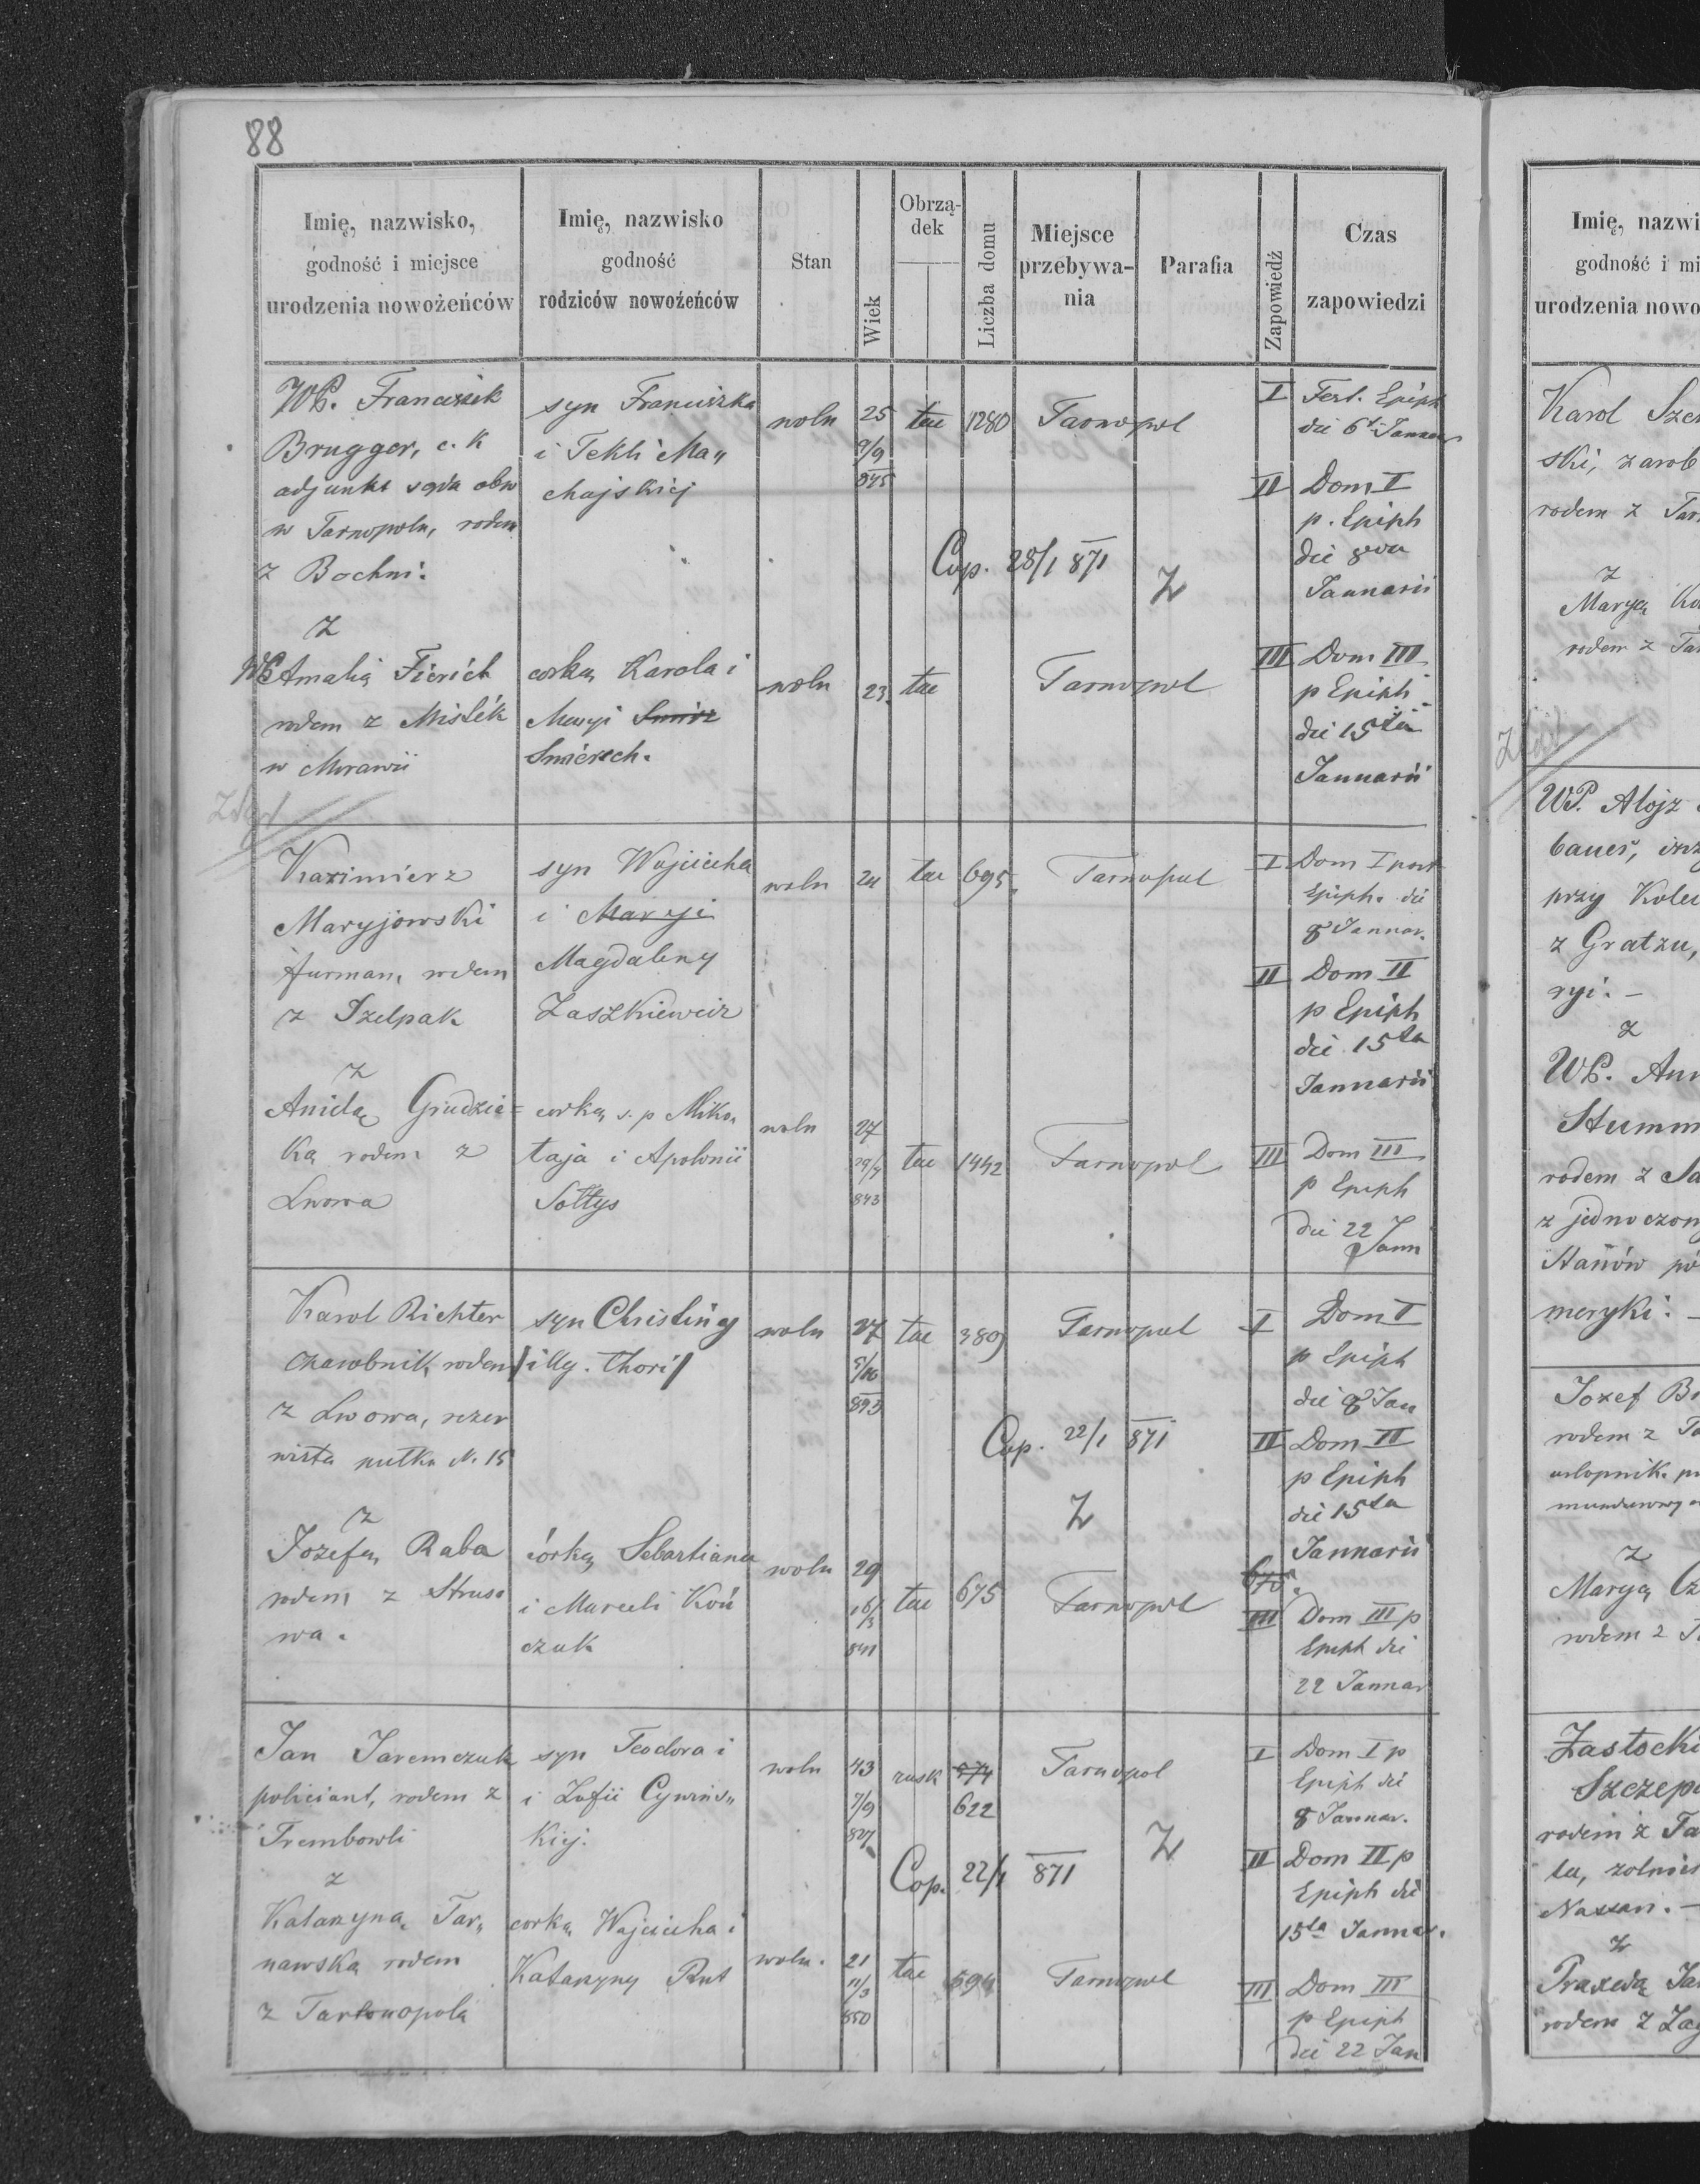 88
Imię, nazwisko,
godność i miejsce
urodzenia nowożeńców
Imię, nazwisko
godność
rodziców nowożeńców
Stan
Wiek
Obrzą-
dek
Liczba domu
Miejsce
przebywa-
nia
Parafia
Zapowiedź
Czas
zapowiedzi
WP. Franciszek
Brugger, c. K
adjunkt sądu obw
w Tarnopolu, rodem
z Bochni.
syn Franciszka
i Tekli Ma„
chajskiej
woln
25
9/9
845
łac
1280
Tarnopol
I Fest. Epiph
die 6ta Januar
II Dom I
p. Epiph
die 8va
Januarii
Cop. 28/1 871
Z
z
WP Amalią Fierich
rodem z Mistek
w Morawii
corką Karola i
Maryi
Smiersch.
woln
23.
łac
Tarnopol
III Dom III
p Epiph
die 15ta
Januarii
Kazimierz
Maryjowski
furman, rodem
z Izelpak
syn Wojciecha
i Maryi
Magdaleny
Laszkiewicz
woln
24
łac
695.
Tarnopol
I Dom I post
Epiph. die
8 Januar.
II Dom II
p Epiph
die 15ta
Januarii
z
Anielą Grudzie=
ką rodem z
Lwowa
corką s. p Miko„
łaja i Apolonii
Sołtys
woln
27
843
łac
1442
Tarnopol
III Dom III
p Epiph
die 22
Jann
Karol Richter
zarobnik, rodem
z Lwowa, rezer
wista pułku N. 15
syn Christiny
/illg. thori/
woln
27
843
łac
389
Tarnopol
I Dom I
p Epiph
die 8 Jan
II Dom II
p Epiph
die 15ta
Januarii
Cop. 22/1 871
Z
z
Jozefą Raba
rodem z Struso
wa.
córką Sebastiana
i Marceli Koń
czuk
woln
29
16/3
841
łac
675
Tarnopol
675.
III Dom III p
Epiph die
22 Januar
Jan Jaremczuk
policiant, rodem z
Trembowli
syn Teodora i
i Zofii Cywińs„
kiej.
woln
43
7/9
827
rusk
674
622
Tarnopol
I Dom I p
Epiph die
8 Januar.
II Dom II p
Epiph die
15ta Januar.
Cop. 22/1 871
Z
z
Katarzyną Tar„
nawską rodem
z Tarnopola
corką Wojciecha i
Katarzyny Rut
woln.
21
11/3
850
łac
594
Tarnopol
III Dom III
p Epiph
die 22 Jan
Imię, nazwi
godność i mi
urodzenia nowo
Karol Szcz
ski, zarob
rodem z Tar
z
Maryą Ko
rodem z Tar
WP. Alojz
bauer, inż
przy Kolei
z Gratzu,
ryi. –
z
WP. Ann
Stumm
rodem z Sa
z jednoczony
Stanów pó
meryki. –
Jozef Br
rodem z Ta
z
Maryą Cz
rodem z T
Zastocki
Szczepa
rodem z Ta
ta, żolnie
Nassau. –
z
Praxedą Ja
rodem z Zag